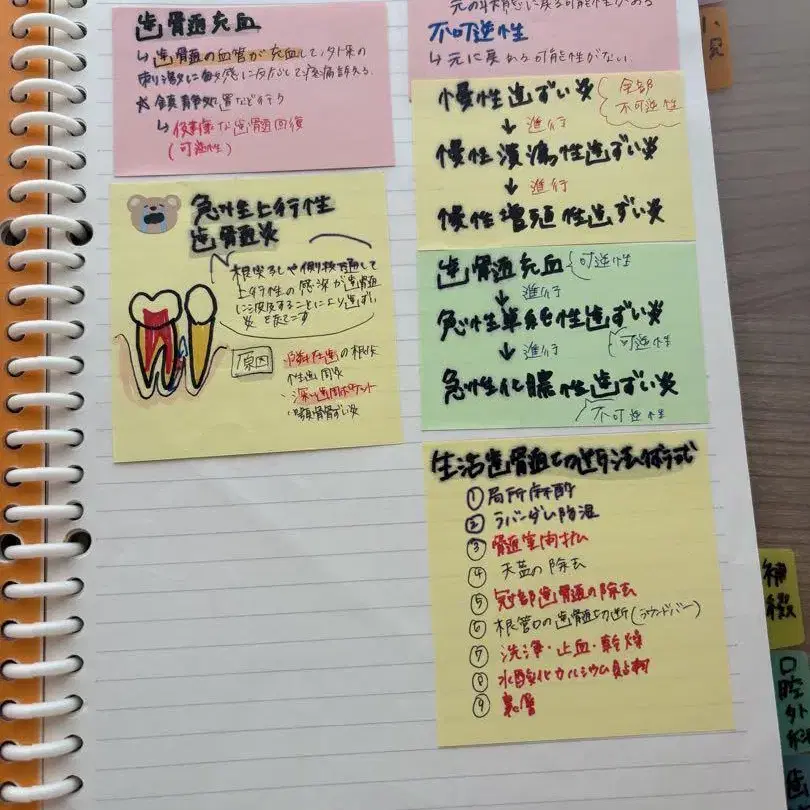 歯髄充血
↳歯髄の血管が充血して外来の
刺激に敏感に反応して疼痛訴える。
* 鎮静処置など行う
↳健康な歯髄回復
(可逆性)
元の状態に戻る可能性がある
不可逆性
↳元に戻れる可能性がない。
慢性歯ずい炎
全部
不可逆性
↓進行
慢性潰瘍性歯ずい炎
↓進行
慢性増殖性歯ずい炎
急性上行性
歯髄炎
根尖孔や側枝を通して
上行性の感染が歯髄
に波及することにより歯ずい
炎を起こす
原因
・隣在歯の根尖
性歯周炎
・深い歯周ポケット
・顎骨骨ずい炎
歯髄充血 可逆性
↓進行
急性単純性歯ずい炎
↓進行 可逆性
急性化膿性歯ずい炎
不可逆性
生活歯髄切断法の術式
① 局所麻酔
② ラバーダム防湿
③ 髄室開拡
④ 天蓋の除去
⑤ 冠部歯髄の除去
⑥ 根管口の歯髄切断(ラウンドバー)
⑦ 洗浄・止血・乾燥
⑧ 水酸化カルシウム貼付
⑨ 裏層
小児
補綴
口腔外科
歯